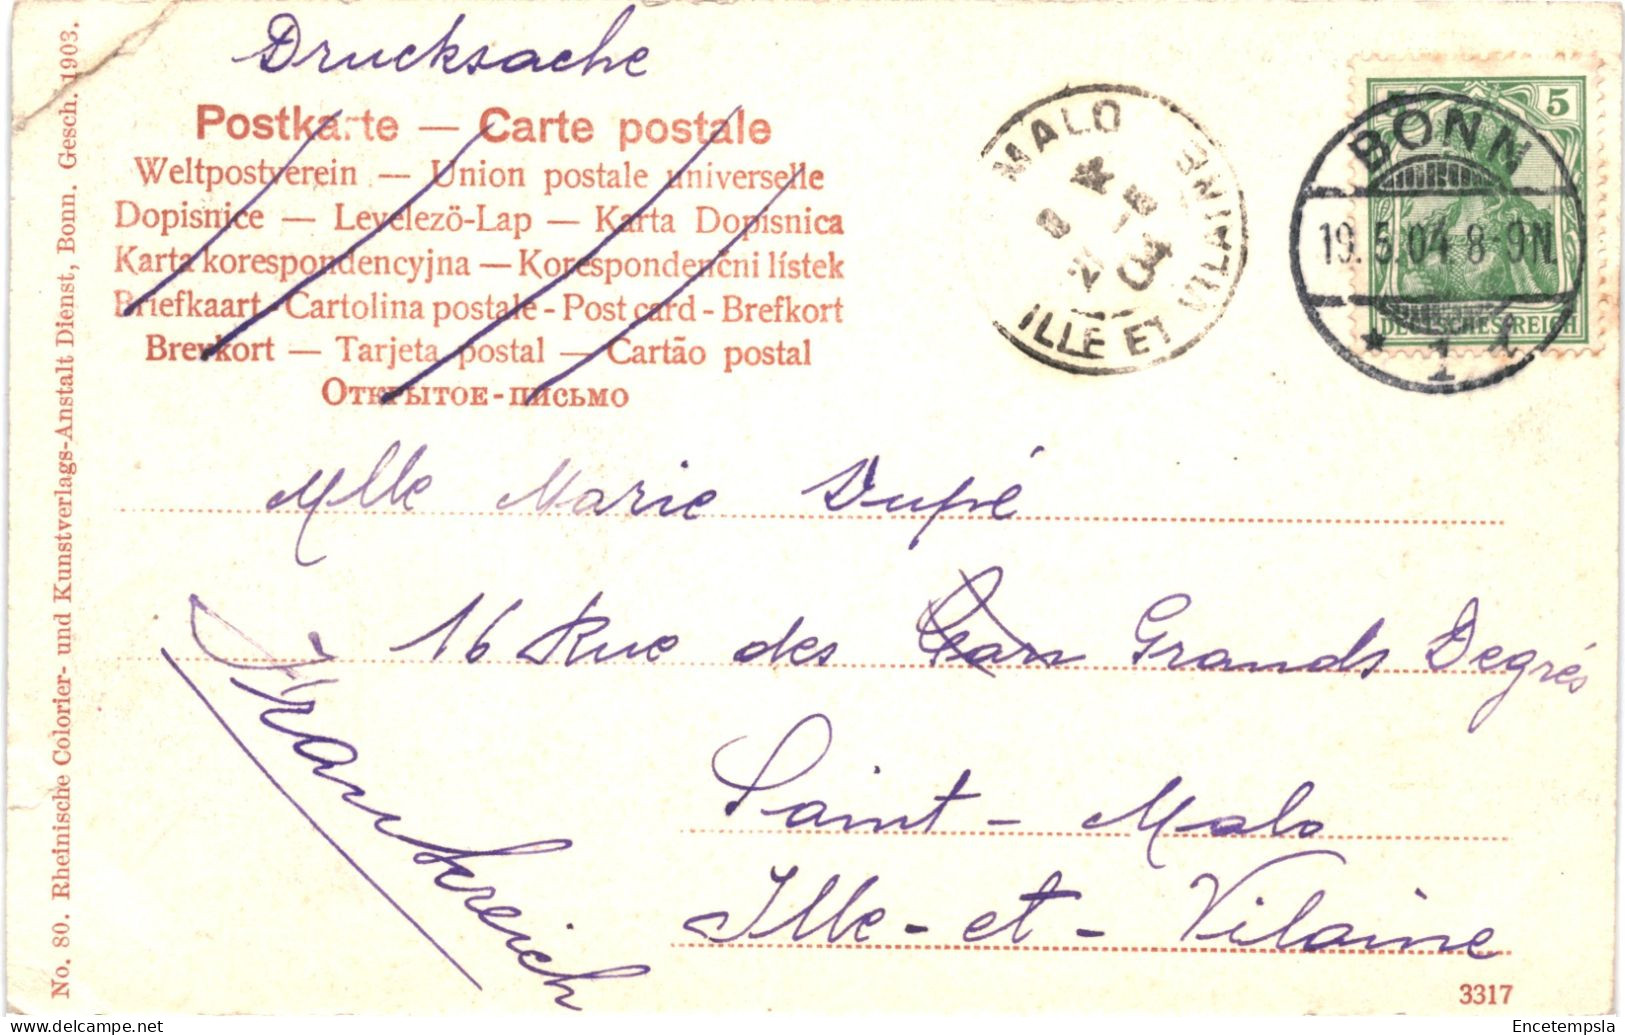 Drucksache
Postkarte — Carte postale
Weltpostverein — Union postale universelle
Dopisnice — Levelező-Lap — Karta Dopisnica
Karta korespondencyjna — Korespondenčni lístek
Briefkaart - Cartolina postale - Post card - Brefkort
Brevkort — Tarjeta postal — Cartão postal
Открытое-письмо
MALO
ILLE ET VILAINE
04
5
BONN
19.5.04 8-9N.
* 1 1
DEUTSCHES REICH
Mlle Marie Dupé
16 Rue des Grands Degrés
Saint-Malo
Ille-et-Vilaine
Frankreich
No. 80. Rheinische Colorier- und Kunstverlags-Anstalt Dienst, Bonn. Gesch. 1903.
3317
Encetempsla